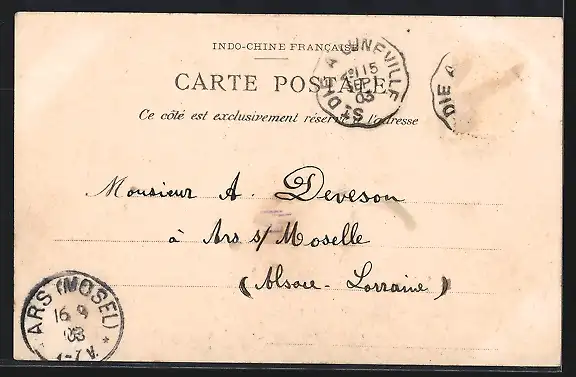 INDO-CHINE FRANÇAISE
CARTE POSTALE
Ce côté est exclusivement réservé à l'adresse
ST DIE A LUNEVILLE
15
03
DIE A
Monsieur A. Deveson
à Ars s/ Moselle
(Alsace-Lorraine)
ARS (MOSEL)
16 9
03
1-7 V.